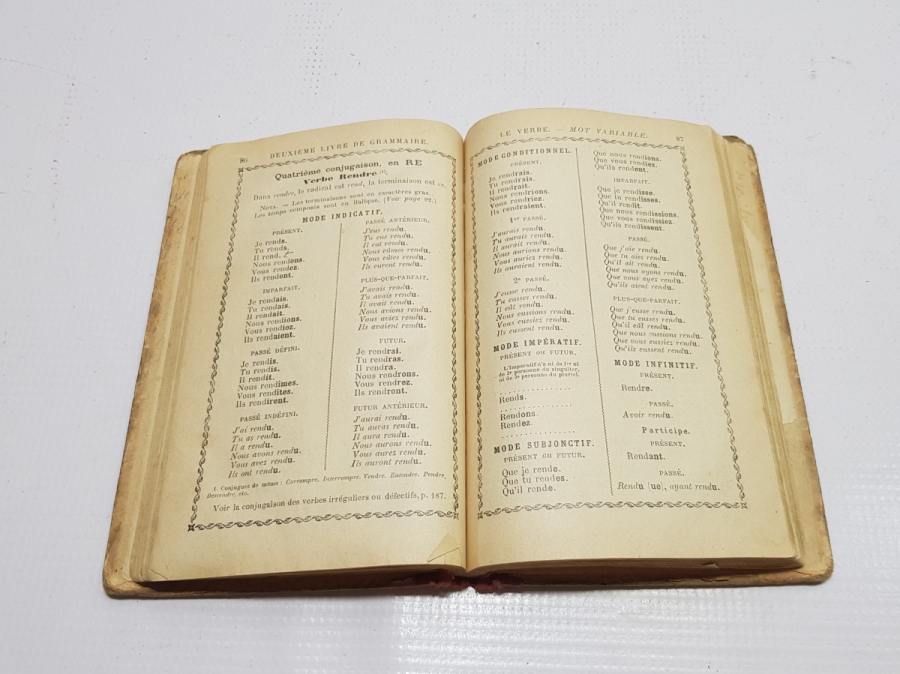 86 DEUXIÈME LIVRE DE GRAMMAIRE.
Quatrième conjugaison, en RE
Verbe Rendre (1).
Dans rendre, le radical est rend, la terminaison est re.
NOTA. — Les terminaisons sont en caractères gras.
Les temps composés sont en italique. (Voir page 92.)
MODE INDICATIF.
PRÉSENT.
Je rends.
Tu rends.
Il rend.
Nous rendons.
Vous rendez.
Ils rendent.
IMPARFAIT.
Je rendais.
Tu rendais.
Il rendait.
Nous rendions.
Vous rendiez.
Ils rendaient.
PASSÉ DÉFINI.
Je rendis.
Tu rendis.
Il rendit.
Nous rendîmes.
Vous rendîtes.
Ils rendirent.
PASSÉ INDÉFINI.
J'ai rendu.
Tu as rendu.
Il a rendu.
Nous avons rendu.
Vous avez rendu.
Ils ont rendu.
PASSÉ ANTÉRIEUR.
J'eus rendu.
Tu eus rendu.
Il eut rendu.
Nous eûmes rendu.
Vous eûtes rendu.
Ils eurent rendu.
PLUS-QUE-PARFAIT.
J'avais rendu.
Tu avais rendu.
Il avait rendu.
Nous avions rendu.
Vous aviez rendu.
Ils avaient rendu.
FUTUR.
Je rendrai.
Tu rendras.
Il rendra.
Nous rendrons.
Vous rendrez.
Ils rendront.
FUTUR ANTÉRIEUR.
J'aurai rendu.
Tu auras rendu.
Il aura rendu.
Nous aurons rendu.
Vous aurez rendu.
Ils auront rendu.
1. Conjuguez de même : Corrompre, Interrompre, Vendre, Entendre, Pendre,
Descendre, etc.
Voir la conjugaison des verbes irréguliers ou défectifs, p. 187.
LE VERBE. — MOT VARIABLE. 87
MODE CONDITIONNEL.
PRÉSENT.
Je rendrais.
Tu rendrais.
Il rendrait.
Nous rendrions.
Vous rendriez.
Ils rendraient.
1er PASSÉ.
J'aurais rendu.
Tu aurais rendu.
Il aurait rendu.
Nous aurions rendu.
Vous auriez rendu.
Ils auraient rendu.
2e PASSÉ.
J'eusse rendu.
Tu eusses rendu.
Il eût rendu.
Nous eussions rendu.
Vous eussiez rendu.
Ils eussent rendu.
MODE IMPÉRATIF.
PRÉSENT OU FUTUR.
L'Impératif n'a ni de 1re ni
de 3e personne du singulier,
ni de 3e personne du pluriel.
Rends.
Rendons.
Rendez.
MODE SUBJONCTIF.
PRÉSENT OU FUTUR.
Que je rende.
Que tu rendes.
Qu'il rende.
Que nous rendions.
Que vous rendiez.
Qu'ils rendent.
IMPARFAIT.
Que je rendisse.
Que tu rendisses.
Qu'il rendît.
Que nous rendissions.
Que vous rendissiez.
Qu'ils rendissent.
PASSÉ.
Que j'aie rendu.
Que tu aies rendu.
Qu'il ait rendu.
Que nous ayons rendu.
Que vous ayez rendu.
Qu'ils aient rendu.
PLUS-QUE-PARFAIT.
Que j'eusse rendu.
Que tu eusses rendu.
Qu'il eût rendu.
Que nous eussions rendu.
Que vous eussiez rendu.
Qu'ils eussent rendu.
MODE INFINITIF.
PRÉSENT.
Rendre.
PASSÉ.
Avoir rendu.
Participe.
PRÉSENT.
Rendant.
PASSÉ.
Rendu (ue), ayant rendu.